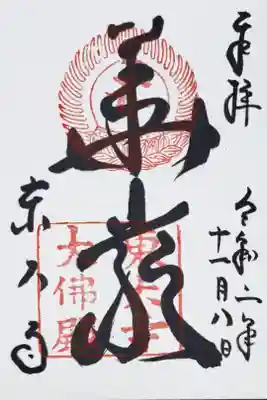 奉拝
令和二年
十一月八日
華厳
東大寺
東大寺
大佛殿